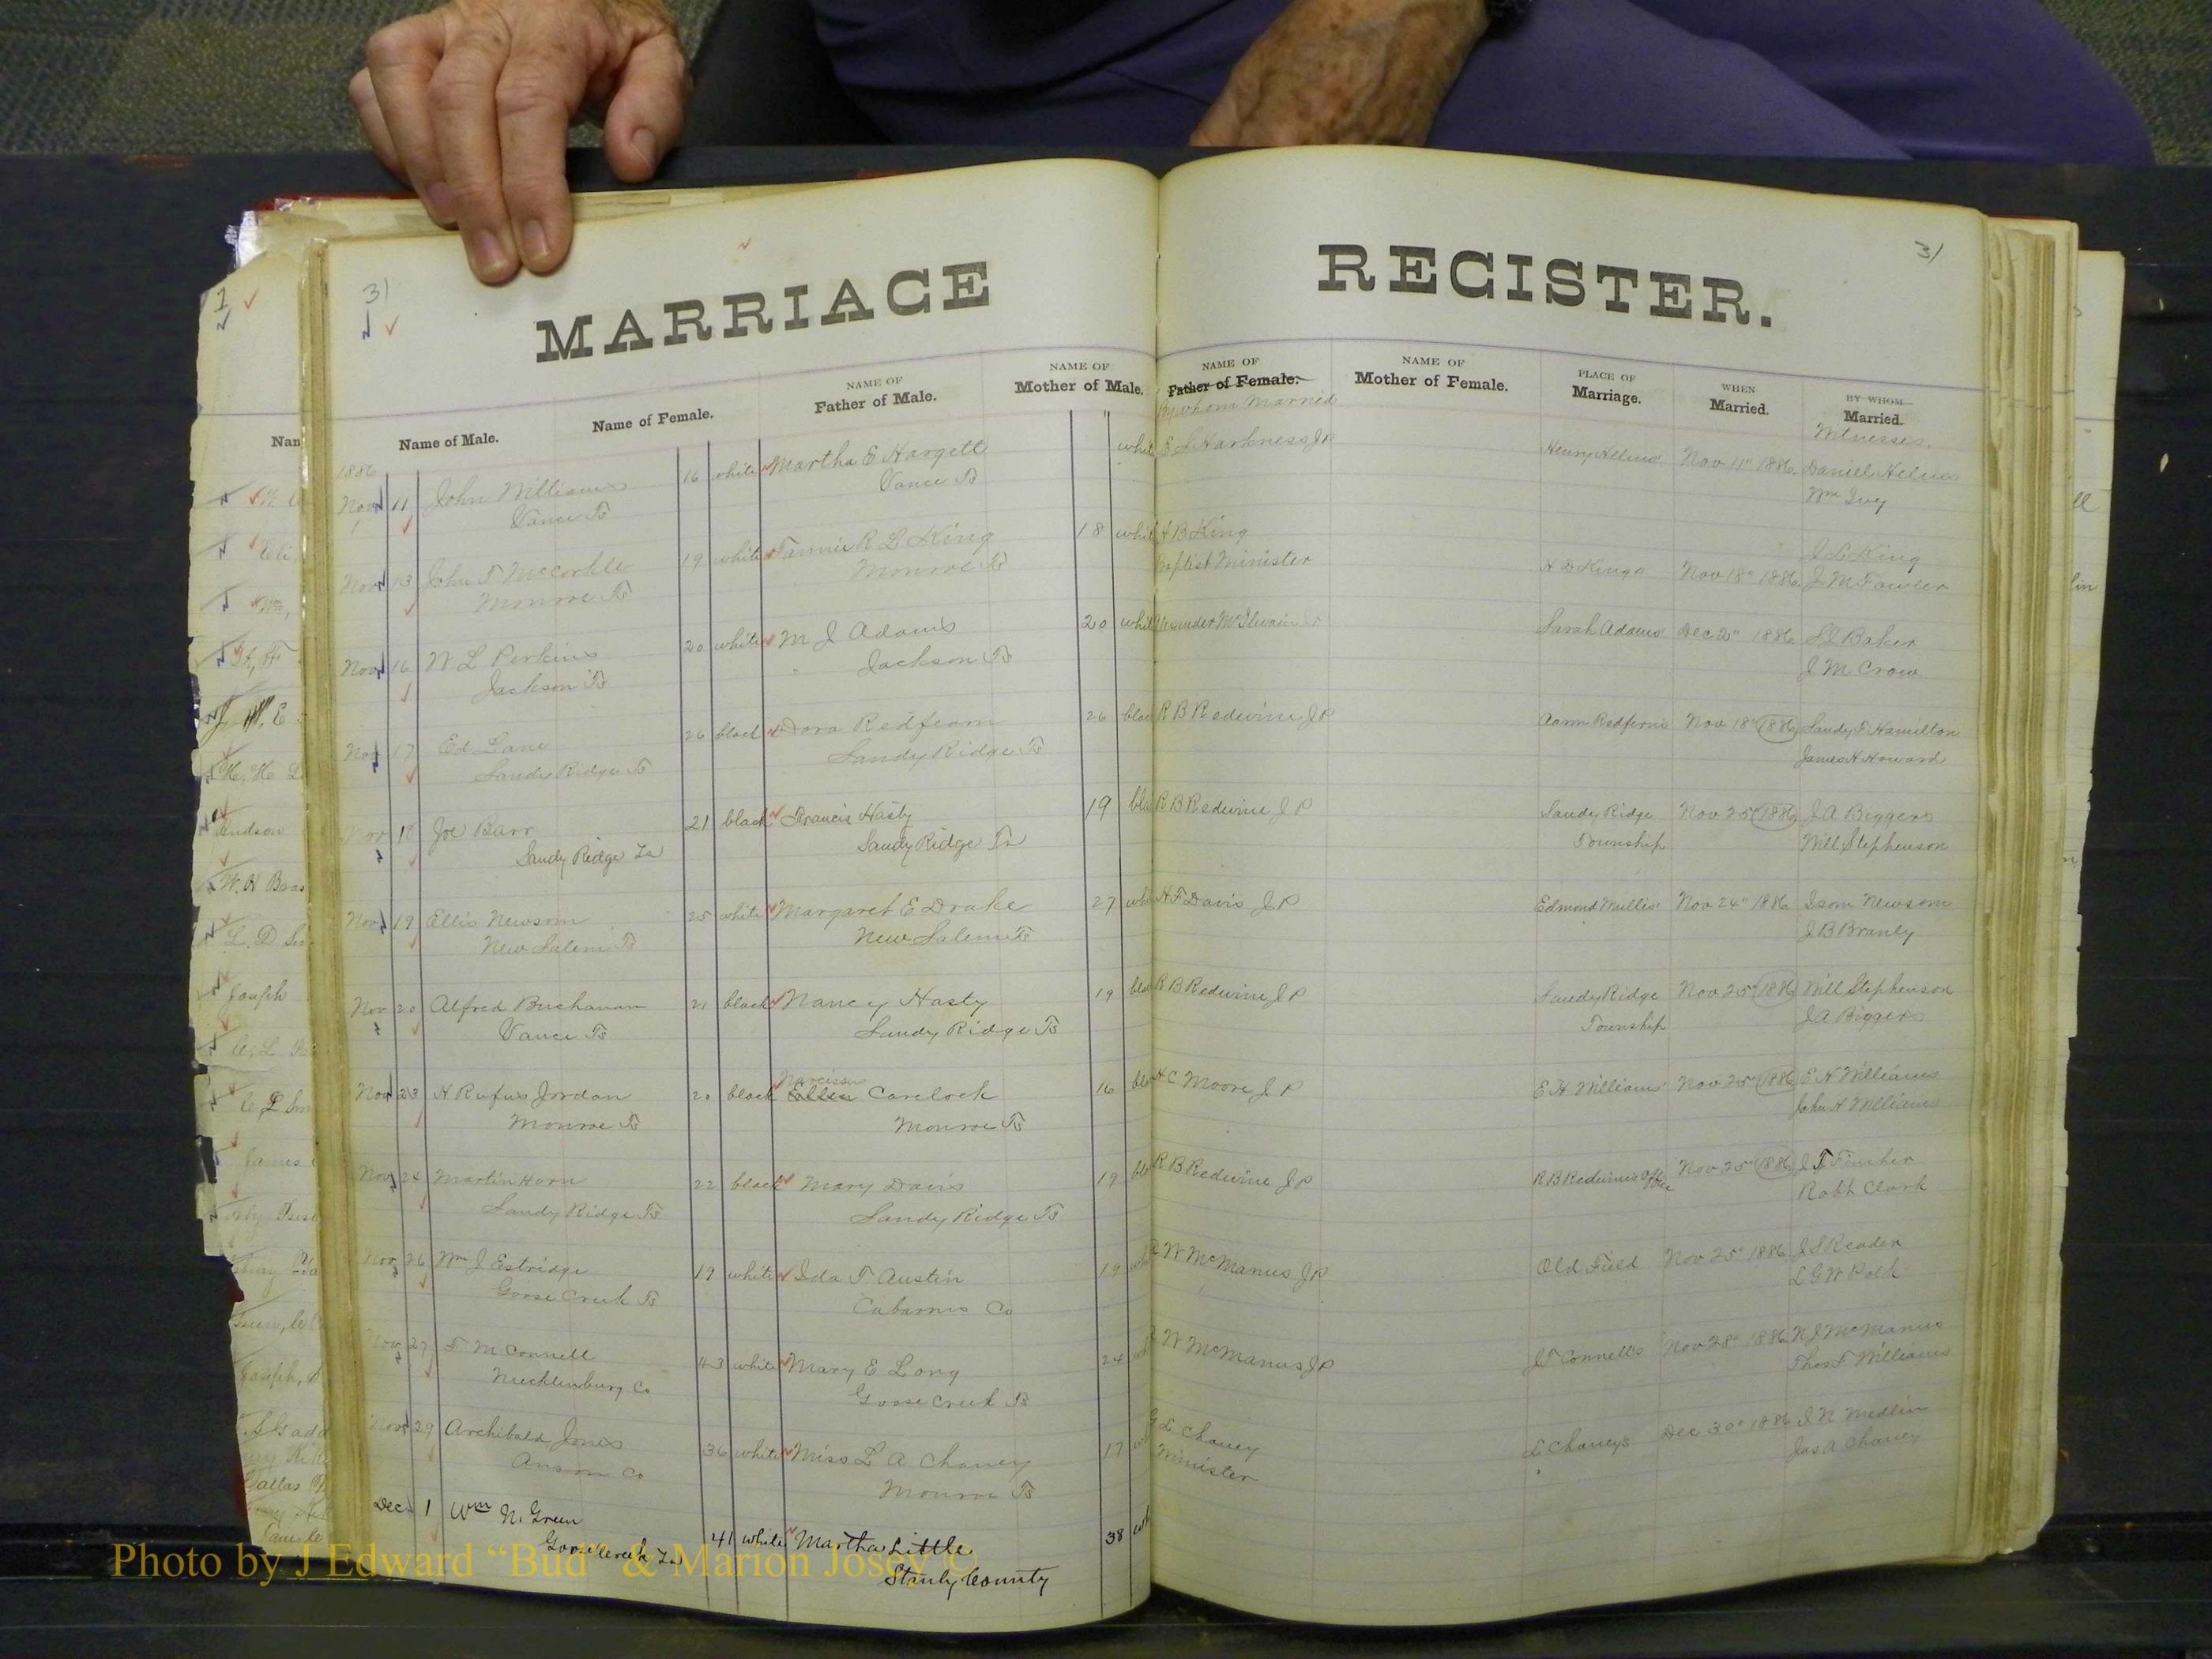 31
31
MARRIAGE REGISTER.
Name of Male.
Name of Female.
NAME OF
Father of Male.
NAME OF
Mother of Male.
NAME OF
Father of Female.
By whom Married
NAME OF
Mother of Female.
PLACE OF
Marriage.
WHEN
Married.
BY WHOM
Married.
Witnesses.
1886
Nov 11 John Williams 16 white Martha E Hargett whit E L Harkness J P Henry Helms' Nov 11" 1886 Daniel Helms
Vance Ts Vance Ts Wm Ivey
Nov 13 John F McCorkle 19 white Fannie R L King 18 whit A B King H B Kings Nov 18" 1886 J L King
Monroe Ts Monroe Ts Baptist Minister J M Fowler
Nov 16 W L Perkins 20 white M J Adams 20 whit McIlwain Sarah Adams' Dec 2" 1886 Baker
Jackson Ts Jackson Ts J M Crow
Nov 17 Ed Lane 26 black Dora Redfearn 26 blac R B Redwine J P Aarn Redferns Nov 18" 1886 Sandy F Hamilton
Sandy Ridge Ts Sandy Ridge Ts James H Howard
Nov 18 Joe Barr 21 black Francis Hasty 19 bla R B Redwine J P Sandy Ridge Nov 25" 1886 J A Biggers
Sandy Ridge Ts Sandy Ridge Ts Township Will Stephenson
Nov 19 Ellis Newsom 25 white Margaret E Drake 27 whi H F Davis J P Edmond Mullis' Nov 24" 1886 Isom Newsom
New Salem Ts New Salem Ts J B Branly
Nov 20 Alfred Buchanan 21 black Nancy Hasty 19 blac R B Redwine J P Sandy Ridge Nov 25" 1886 Will Stephenson
Vance Ts Sandy Ridge Ts Township J A Biggers
Narcissus
Nov 23 H Rufus Jordan 20 black Ellen Carelock 16 bla H C Moore J P E H Williams' Nov 25" 1886 E H Williams
Monroe Ts Monroe Ts John H Williams
Nov 24 Martin Horn 22 black Mary Davis 19 bla R B Redwine J P R B Redwine's Office Nov 25" 1886 J F Fincher
Sandy Ridge Ts Sandy Ridge Ts Robt Clark
Nov 26 Wm J Estridge 19 white Ida F Austin 19 R W McManus J P Old Field Nov 25" 1886 J S Reader
Goose Creek Ts Cabarrus Co L G W Polk
Nov 27 F M Connell 43 white Mary E Long 24 R W McManus J P J F Connell's Nov 28" 1886 N J McManus
Mecklenburg Co Goose Creek Ts Thos F Williams
Nov 29 Archibald Jones 36 white Miss L A Chaney 17 G L Chaney L Chaney's Dec 30" 1886 J N Medlin
Anson Co Monroe Ts Minister Jas A Chaney
Dec 1 Wm N. Green 41 white Martha Little 38 wh
Goose Creek Ts Stanly County
Photo by J Edward "Bud" & Marion Josey ©